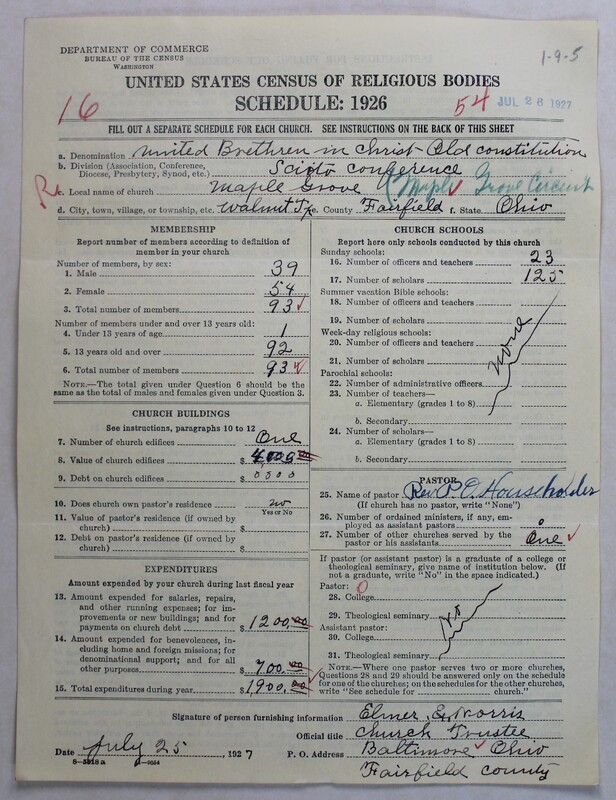 DEPARTMENT OF COMMERCE
BUREAU OF THE CENSUS
WASHINGTON
1-9-5
UNITED STATES CENSUS OF RELIGIOUS BODIES
SCHEDULE: 1926
16
54 JUL 26 1927
FILL OUT A SEPARATE SCHEDULE FOR EACH CHURCH. SEE INSTRUCTIONS ON THE BACK OF THIS SHEET
a. Denomination United Brethren in Christ Old constitution
b. Division (Association, Conference, Diocese, Presbytery, Synod, etc.) Scioto conference
c. Local name of church Maple Grove (Maple Grove Circuit
d. City, town, village, or township, etc. Walnut Tp. e. County Fairfield f. State Ohio
MEMBERSHIP
Report number of members according to definition of
member in your church
Number of members, by sex:
1. Male 39
2. Female 54
3. Total number of members 93
Number of members under and over 13 years old:
4. Under 13 years of age 1
5. 13 years old and over 92
6. Total number of members 93
NOTE.—The total given under Question 6 should be
same as the total of males and females given under Question 3.
CHURCH BUILDINGS
See instructions, paragraphs 10 to 12
7. Number of church edifices One
8. Value of church edifices $
9. Debt on church edifices $
10. Does church own pastor's residence no
Yes or No
11. Value of pastor's residence (if owned by
church) $
12. Debt on pastor's residence (if owned by
church) $
EXPENDITURES
Amount expended by your church during last fiscal year
13. Amount expended for salaries, repairs,
and other running expenses; for im-
provements or new buildings; and for
payments on church debt $ 1200.00
14. Amount expended for benevolences, in-
cluding home and foreign missions; for
denominational support; and for all
other purposes $ 700.00
15. Total expenditures during year $ 1900.00
CHURCH SCHOOLS
Report here only schools conducted by this church
Sunday schools:
16. Number of officers and teachers 23
17. Number of scholars 125
Summer vacation Bible schools:
18. Number of officers and teachers
19. Number of scholars
Week-day religious schools:
20. Number of officers and teachers
21. Number of scholars
none
Parochial schools:
22. Number of administrative officers
23. Number of teachers—
a. Elementary (grades 1 to 8)
b. Secondary
24. Number of scholars—
a. Elementary (grades 1 to 8)
b. Secondary
PASTOR
25. Name of pastor Rev. P. O. Householder
(If church has no pastor, write "None")
26. Number of ordained ministers, if any, em-
ployed as assistant pastors 0
27. Number of other churches served by the
pastor or his assistants One
If pastor (or assistant pastor) is a graduate of a college or
theological seminary, give name of institution below. (If
not a graduate, write "No" in the space indicated.)
Pastor: 0
28. College
29. Theological seminary
No
Assistant pastor:
30. College
31. Theological seminary
NOTE.—Where one pastor serves two or more churches,
Questions 28 and 29 should be answered only on the schedule
for one of the churches; on the schedules for the other churches,
write "See schedule for church."
Signature of person furnishing information Elmer E. Norris
Official title Church Trustee
Date July 25, 1927 P. O. Address Baltimore Ohio
Fairfield county